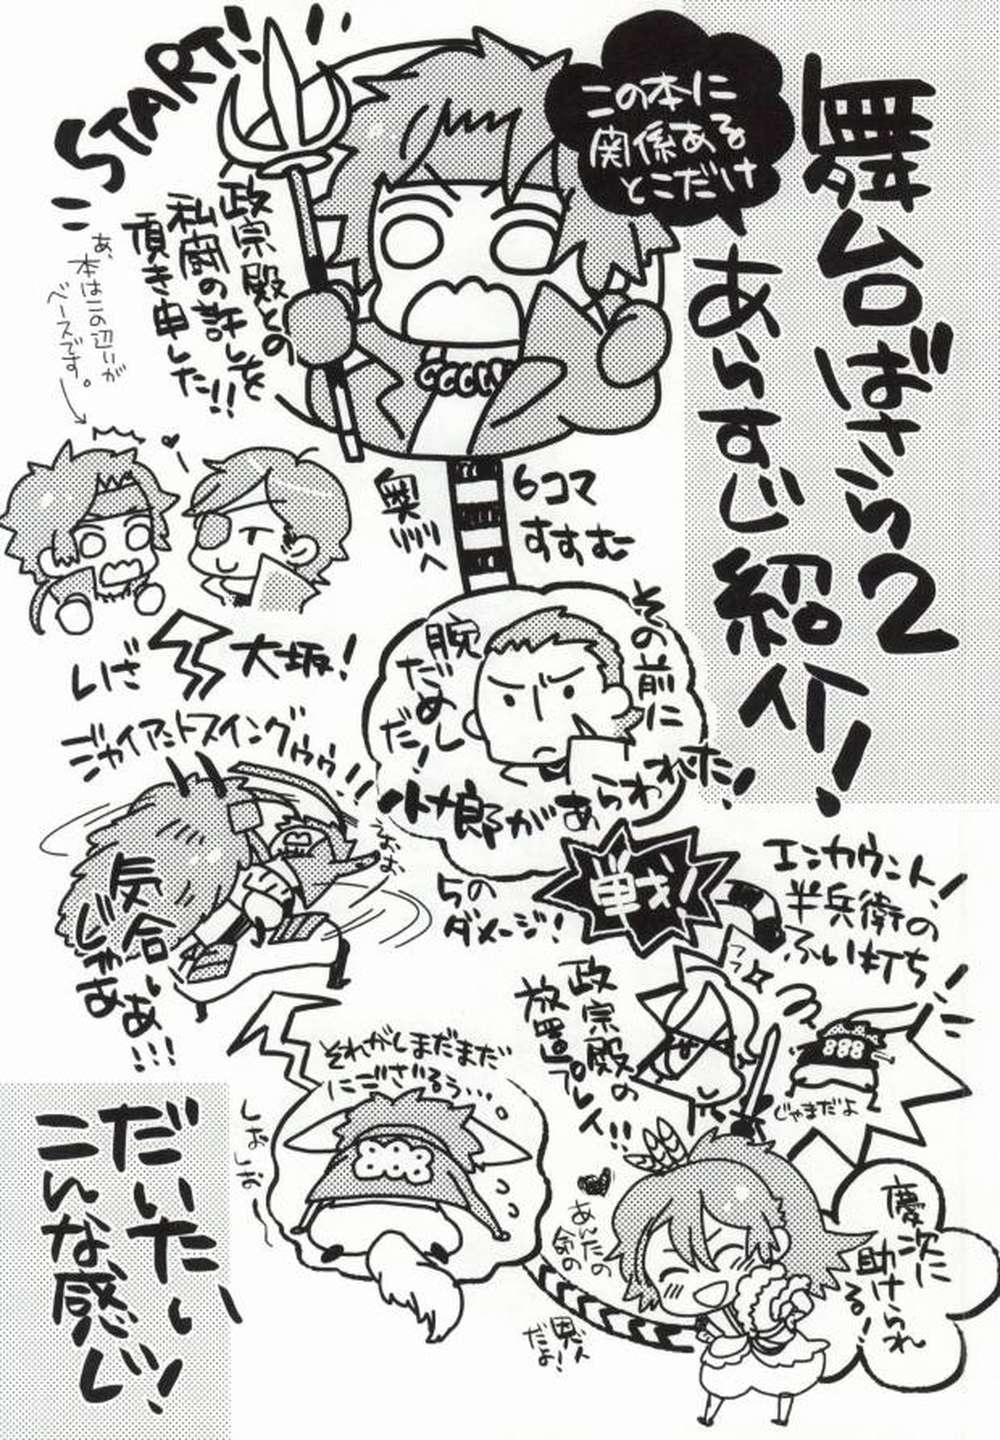 舞台ばさら2
あらすじ紹介!
この本に
関係ある
とこだけ
START!!
政宗殿との
私闘の許しを
頂き申した!!
あ、本はこの辺が
ベースです。
6コマ
すすむ
奥州へ
その前に
腕
だめし
だ!
小十郎があらわれた!
戦!
5の
ダメージ!
エンカウント!
半兵衛の
ふい打ち!
フフ
じゃまだよ
政宗殿の
放置プレイ!!
慶次に
助けられ
る!
あいたの
命の
恩人
だよ!
それがしまだまだ
にござるぅ…。
しおしお
いざ
大坂!
ジャイアントスイングゥゥ!!
おお
気合い
じゃあああ!!!
だいたい
こんな感じ!